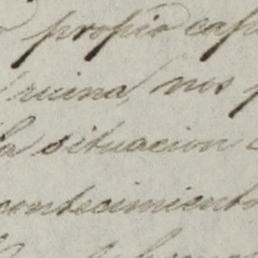 propio cap
ruina, nos p
la situacion
contecimient